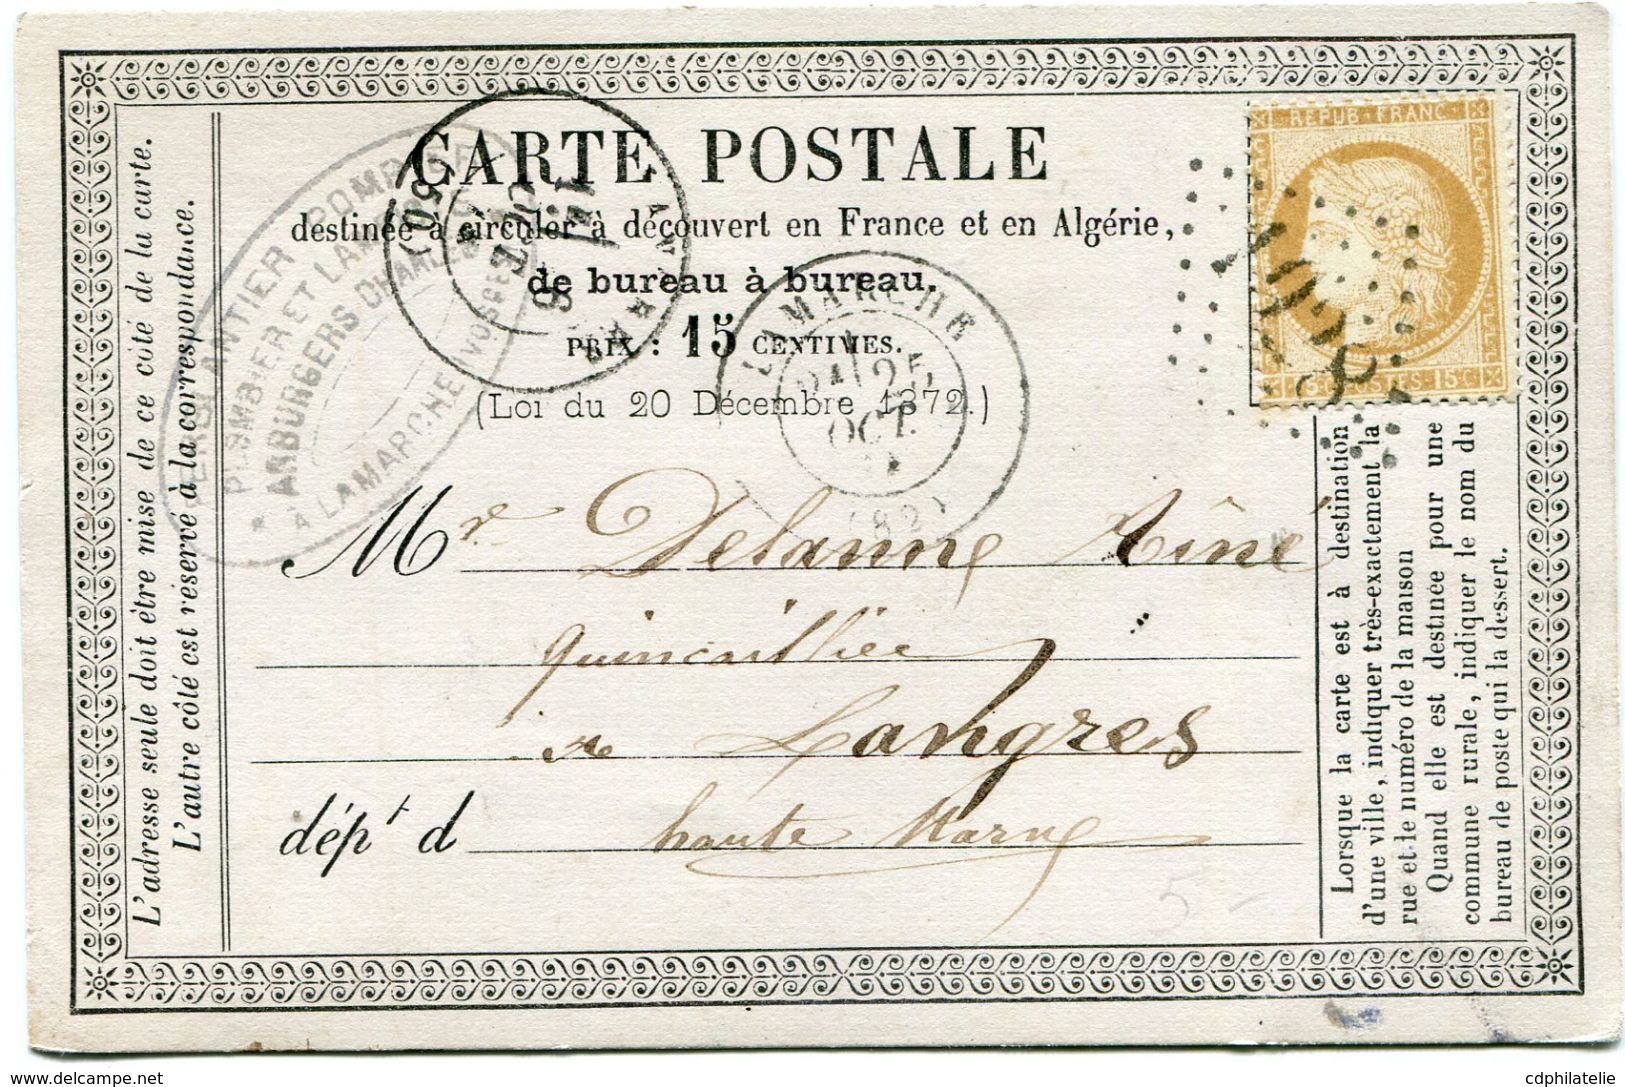 CARTE POSTALE
destinée à circuler à découvert en France et en Algérie,
de bureau à bureau.
PRIX : 15 CENTIMES.
(Loi du 20 Décembre 1872.)
Mr Delanne Aîné
quincaillier
à Langres
dépt d haute Marne
L'adresse seule doit être mise de ce côté de la carte.
L'autre côté est réservé à la correspondance.
Lorsque la carte est à destination
d'une ville, indiquer très-exactement la
rue et le numéro de la maison
Quand elle est destinée pour une
commune rurale, indiquer le nom du
bureau de poste qui la dessert.
REPUB FRANC
POSTES 15 C
LAMARCHE
25
OCT
(82)
FERBLANTIER POMPIER
PLOMBIER ET LAMPISTE
AMBURGERS CHARLES
À LAMARCHE (VOSGES)
5
delcampe.net
cdphilatelie